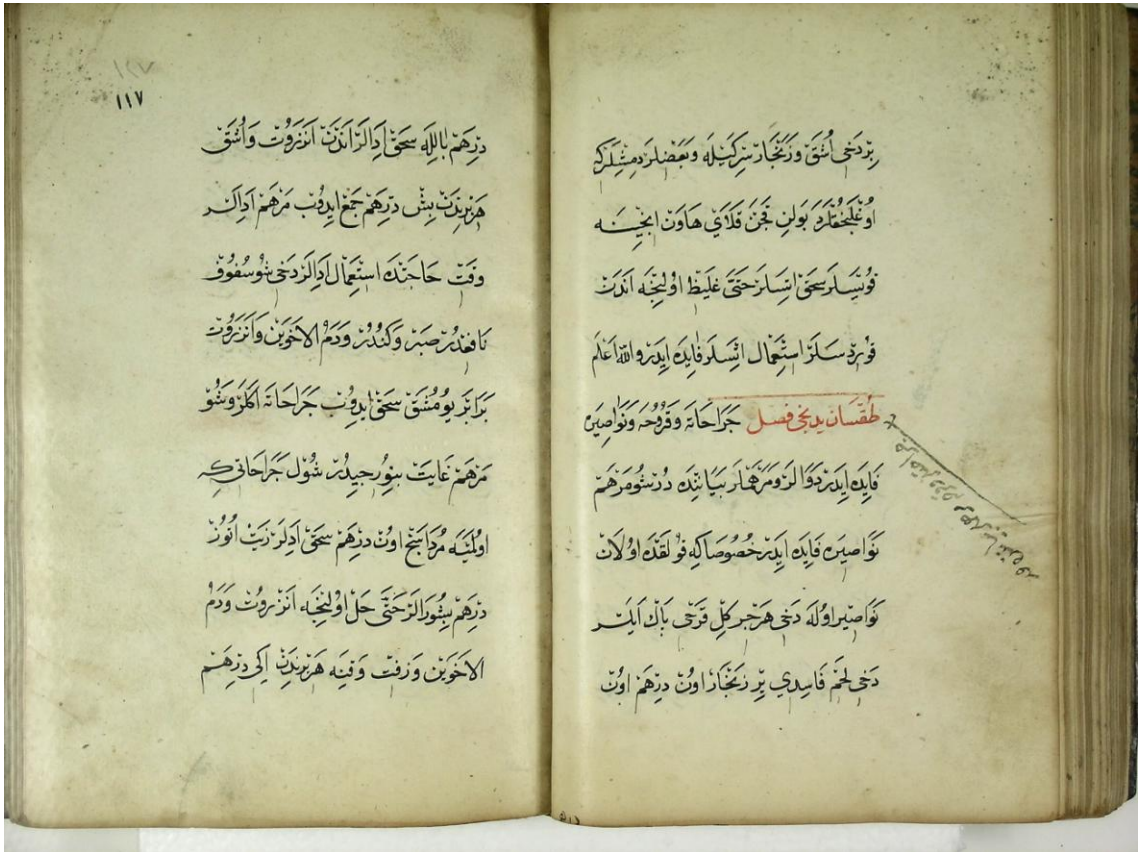 بِرْدَخِى اُشَقْ وَزَنْجَارْ سِرْكَيْلَه وَبَعْضِلَرْ دِمِشْلَرْكِه
اوُغْلَنْجُقْلَرْدَ بَوْلِنْ قَچَنْ قَلَايْ هَاوَنْ اِيچِنَه
قوُيْسَلَرْ سَحَقْ اِتْسَلَرْ حَتَّى غَلِيظْ اوُلِنْجَه اَنْدَنْ
قوُرِدْسَلَرْ اسْتِعْمَالْ اِتْسَلَرْ فَايِدَه اِيدَرْ وَاللّٰهُ اَعْلَم
طُقْسَانْ يِدِنْجِى فَصِلْ جَرَاحَاتَه وَقُرُوحَه وَنَوَاصِيرَه
فَايِدَه اِيدَرْ دَوَالَرْ وَمَرْهَمْلَرْ بَيَانِنْدَه دُرْ شُو مَرْهَمْ
نَوَاصِيرَه فَايِدَه اِيدَرْ خُصُوصَا كِه قوُلَقْدَه اوُلَانْ
نَوَاصِيرْ اوُلَه دَخِى هَرْ كِلّ قَرْحِى پَاكْ اَيْلَرْ
دَخِى لَحْمِ فَاسِدِي يِرْ زَنْجَارْ اوُنْ دِرْهَمْ اوُنْ
١١٧
دِرْهَمْ بَالِلَه سَحَقْ اِدَالَرْ اَنْدَنْ اَنْزَرُوتْ وَاُشَقْ
هَرْبِرِنْدَنْ بِشْ دِرْهَمْ جَمْعْ اِيدُوبْ مَرْهَمْ اِدَالَرْ
وَقْتِ حَاجَتْدَه اسْتِعْمَالْ اِدَالَرْ دَخِى شُو سُفُوفْ
نَافِعْدُرْ صَبِرْ وَكُنْدُرْ وَدَمُ الْاَخَوَيْنْ وَاَنْزَرُوتْ
بَرَابَرْ يوُمُشَقْ سَحَقْ اِيدُوبْ جَرَاحَاتَه اَكَلَرْ وَشُو
مَرْهَمْ غَايَتْ بِتُورِجِيدُرْ شُولْ جَرَاحَاتِى كِه
اوُلْمَيَه مُرْدَاسَنْجْ اوُنْ دِرْهَمْ سَحَقْ اِدَلَرْ زَيْتْ اُتُوزْ
دِرْهَمْ بِشُورَالَرْ حَتَّى حَلْ اوُلِنْجَه اَنْزَرُوتْ وَدَمُ
الْاَخَوَيْنْ وَزِفْتْ وَقِنَه هَرْبِرِنْدَنْ اِكِى دِرْهَمْ